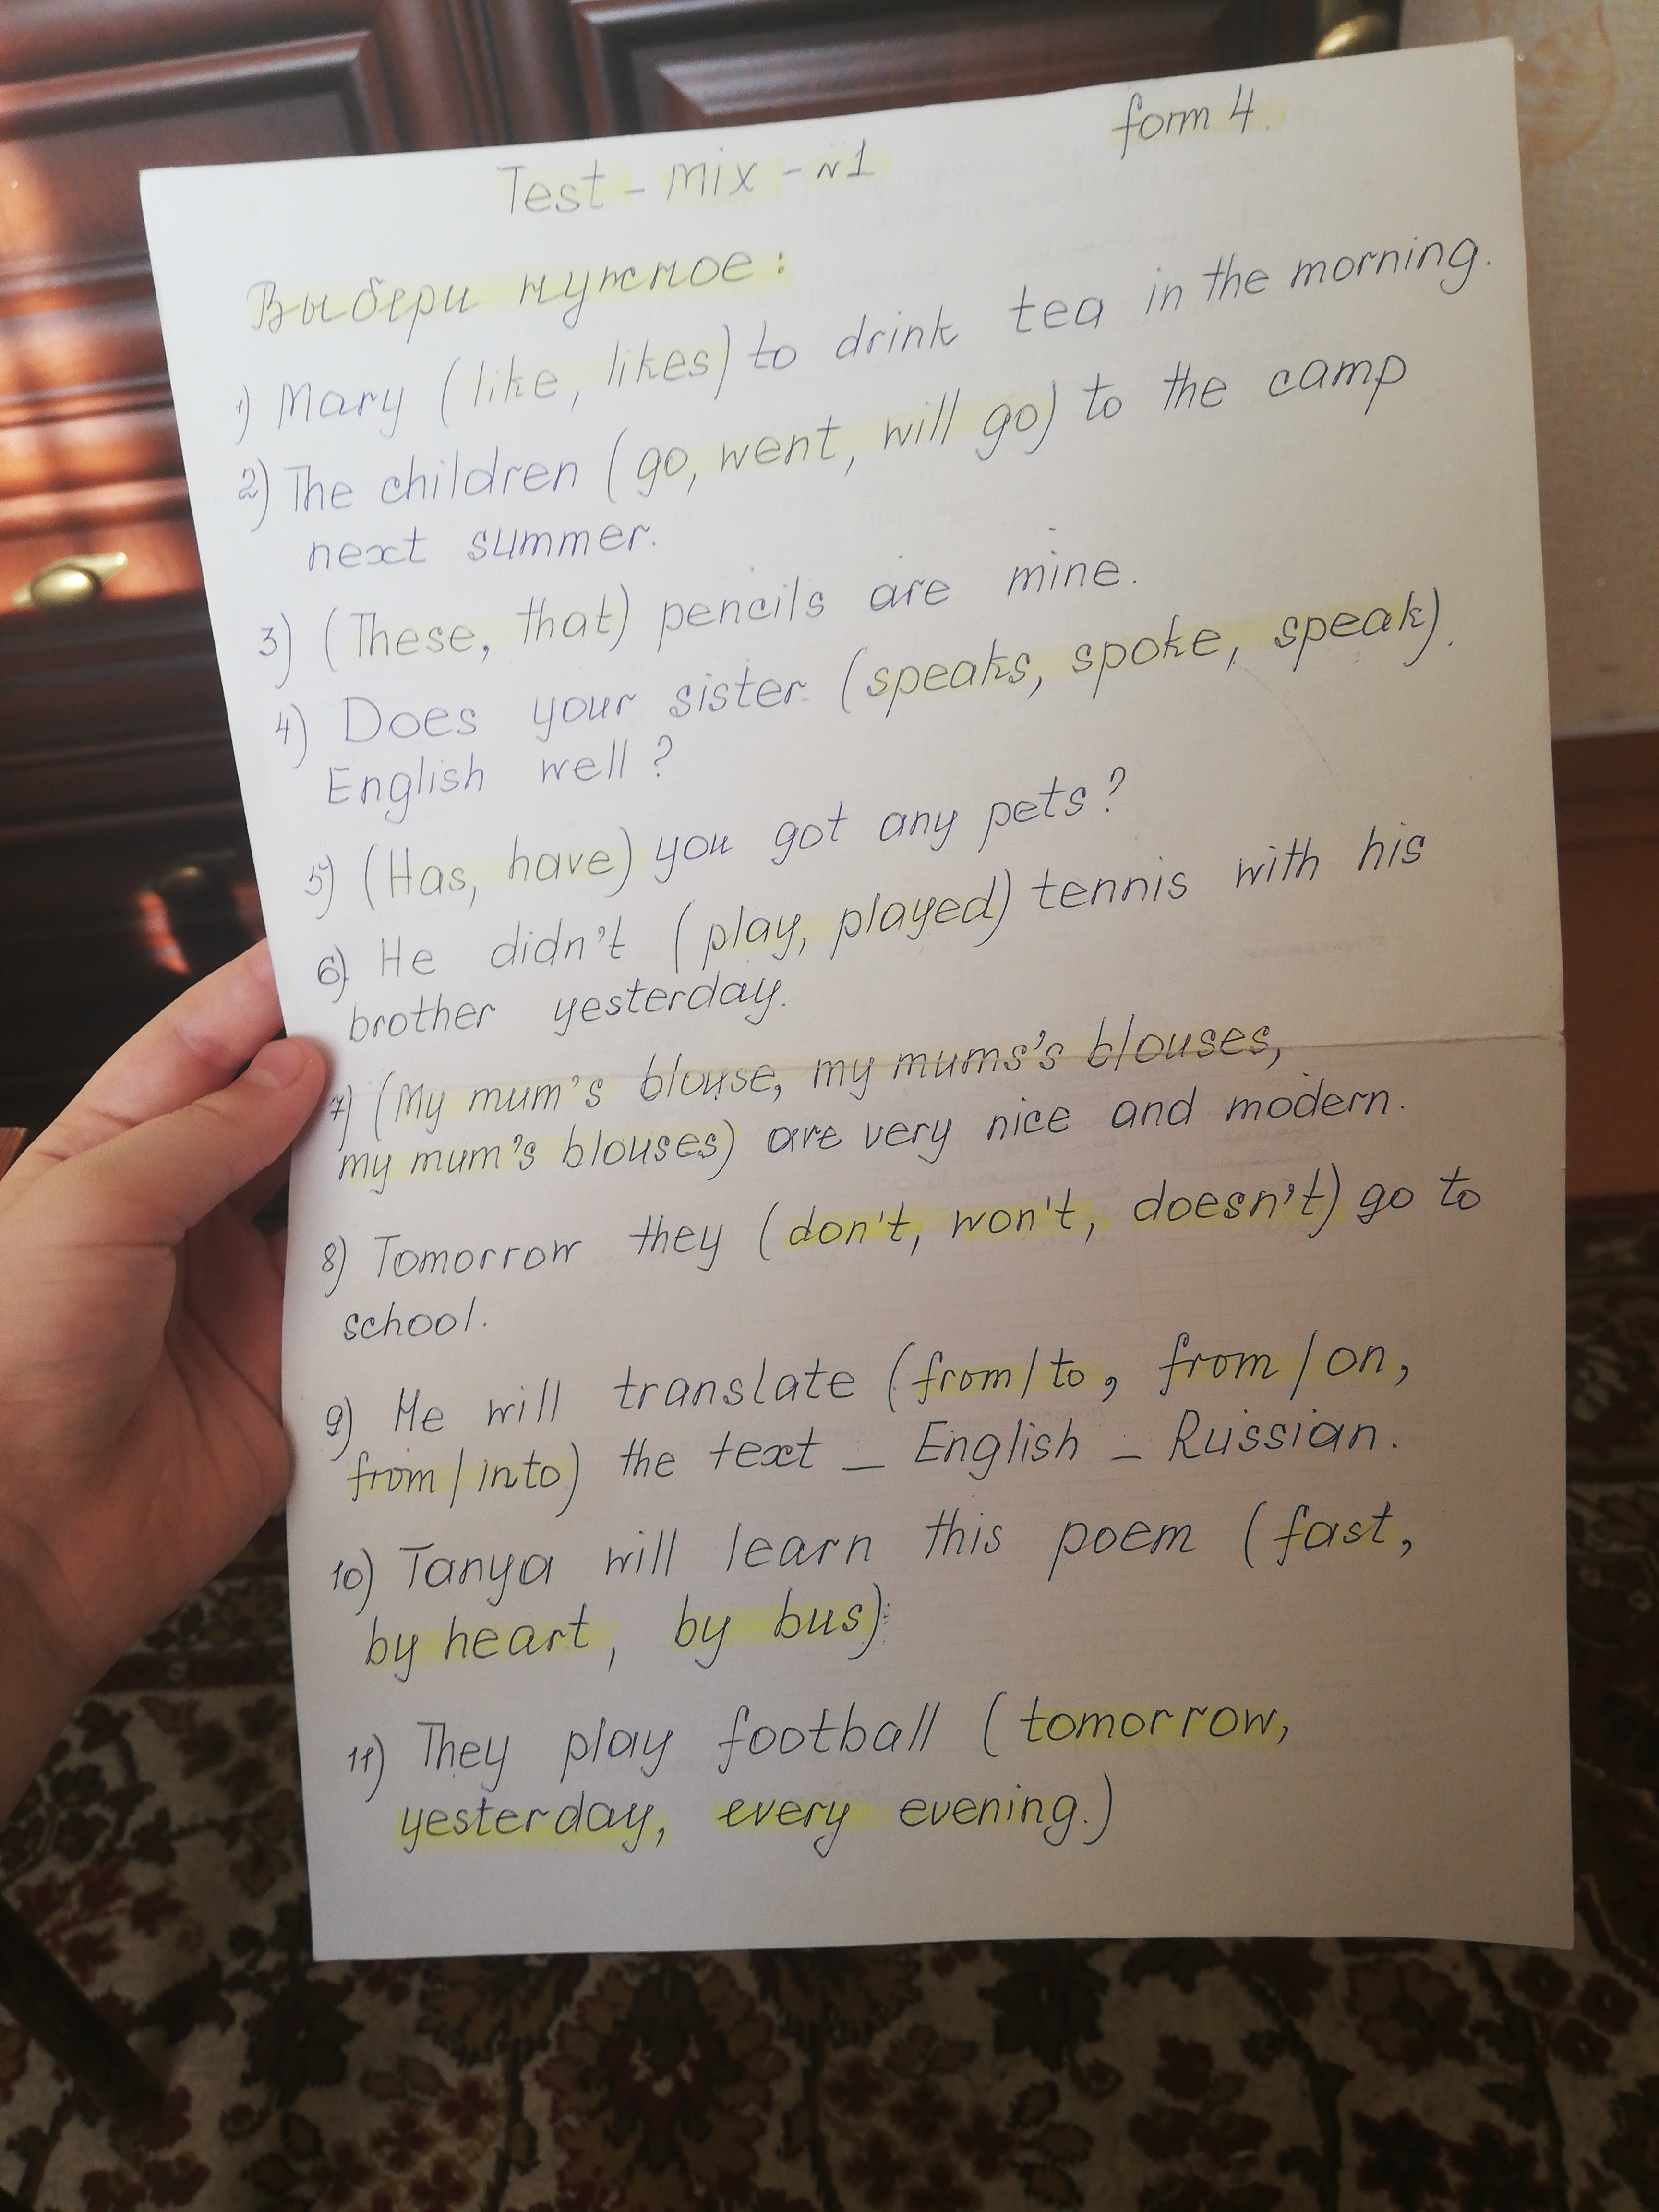 form 4.
Test - mix - №1
Выбери нужное:
1) Mary (like, likes) to drink tea in the morning.
2) The children (go, went, will go) to the camp
next summer.
3) (These, that) pencils are mine.
4) Does your sister (speaks, spoke, speak).
English well?
5) (Has, have) you got any pets?
6) He didn't (play, played) tennis with his
brother yesterday.
7) (My mum's blouse, my mums's blouses,
my mum's blouses) are very nice and modern.
8) Tomorrow they (don't, won't, doesn't) go to
school.
9) He will translate (from/to, from/on,
from/into) the text _ English _ Russian.
10) Tanya will learn this poem (fast,
by heart, by bus).
11) They play football (tomorrow,
yesterday, every evening.)